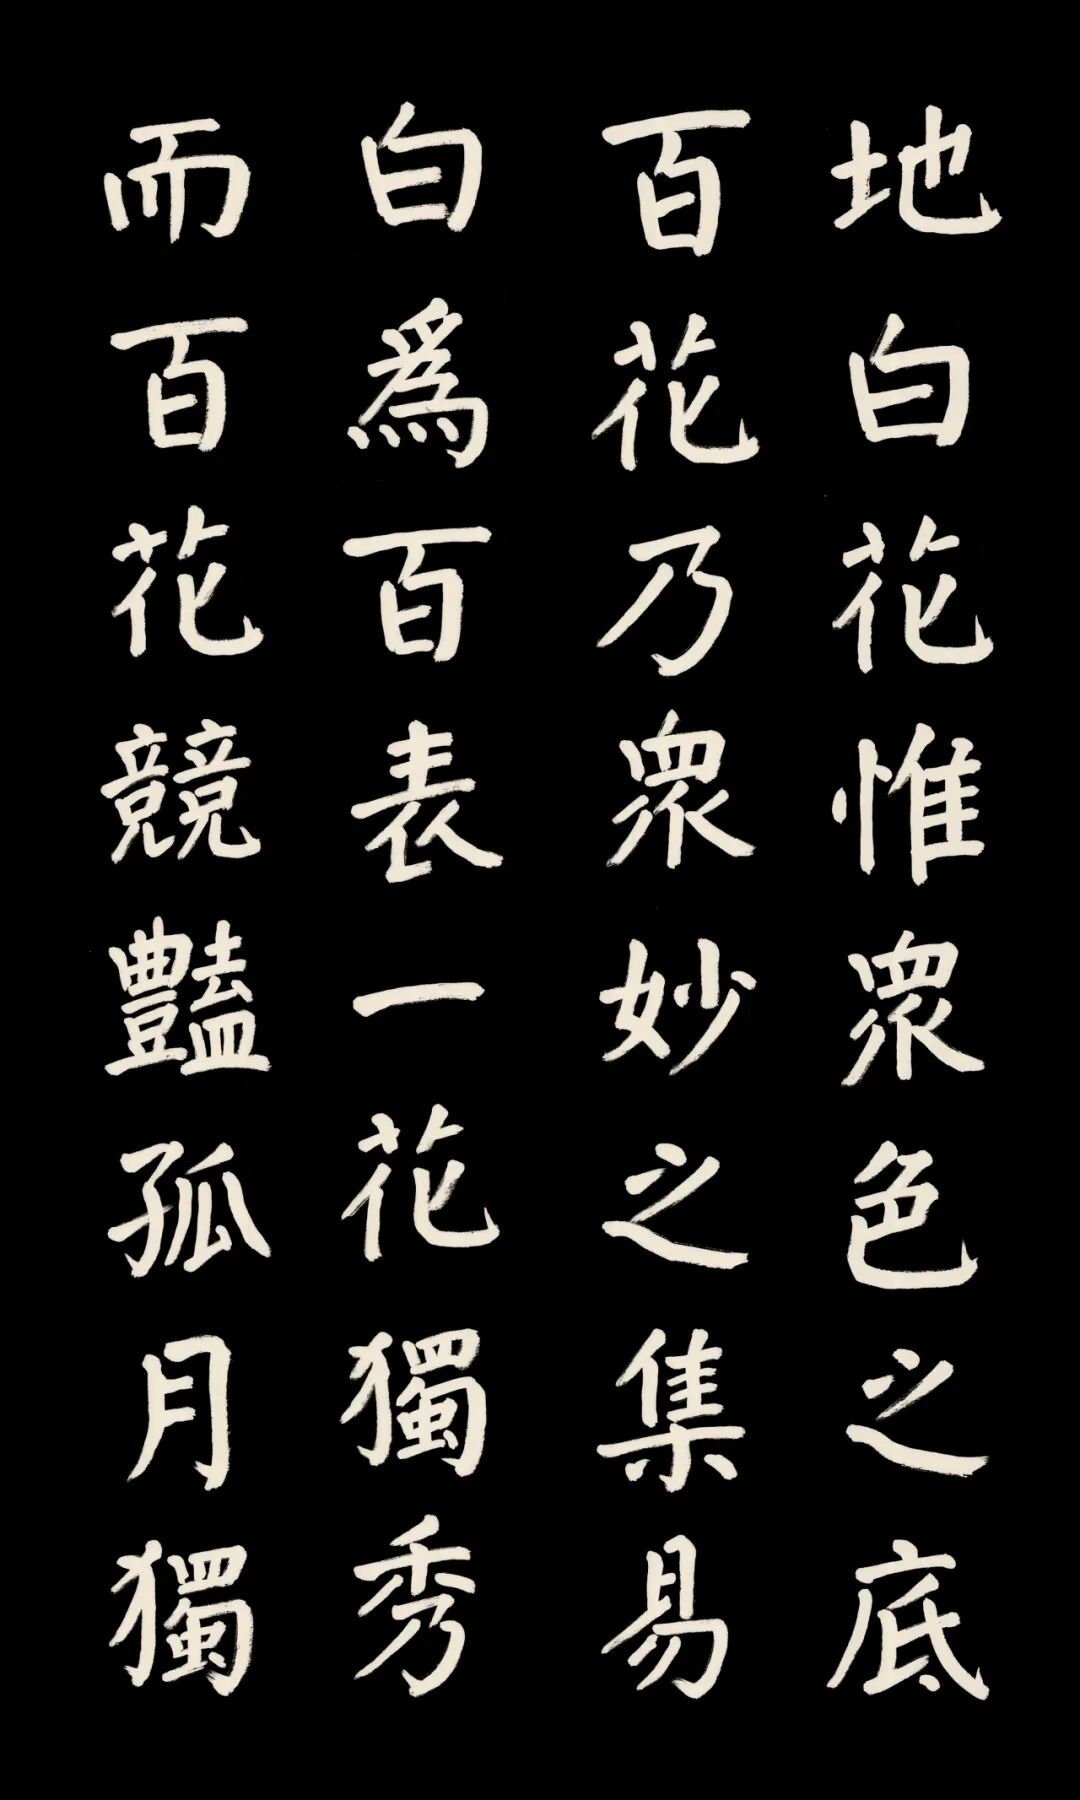 地白花惟眾色之底
百花乃眾妙之集易
白為百表一花獨秀
而百花競豔孤月獨